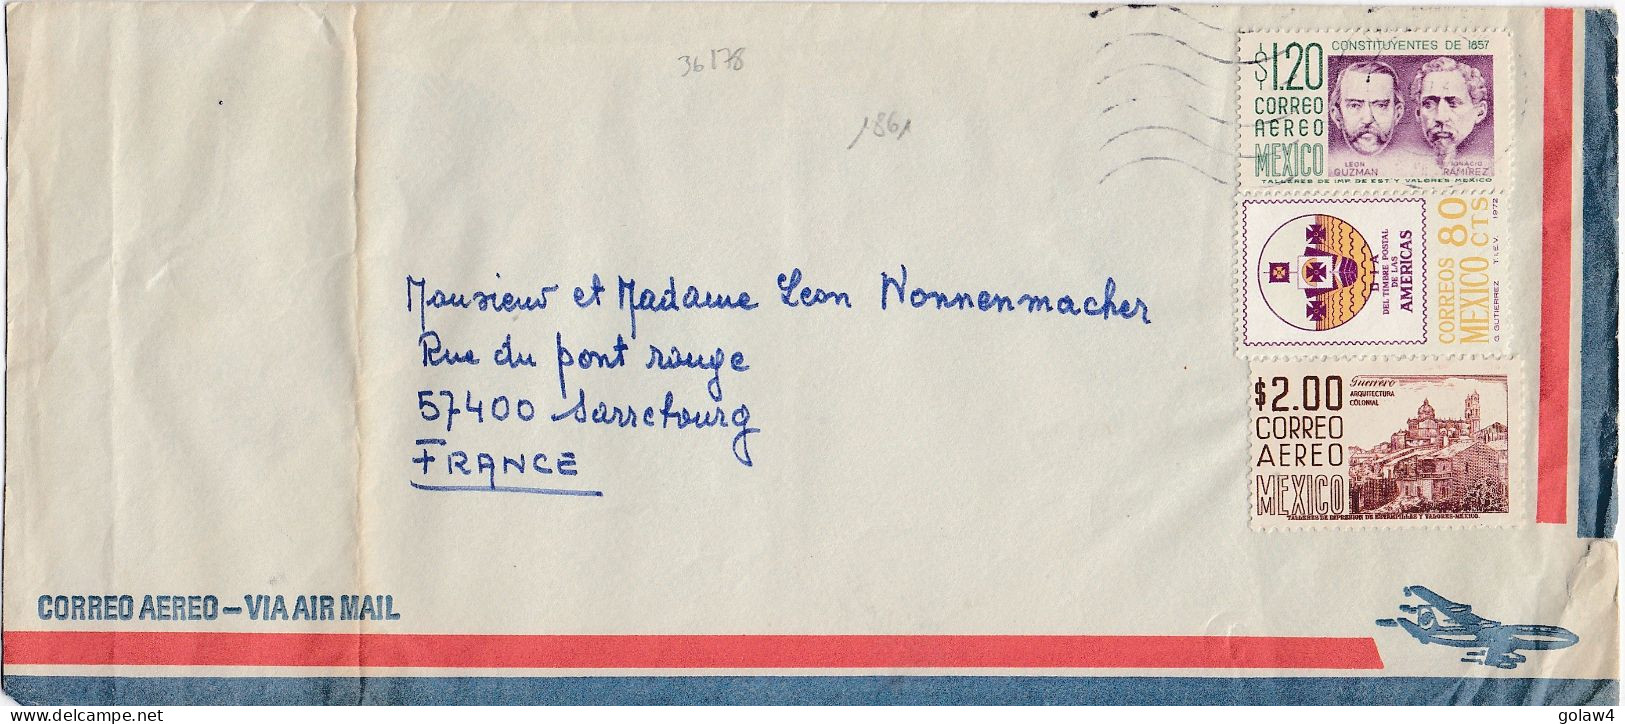 36178
1861
$1.20
CONSTITUYENTES DE 1857
CORREO
AEREO
MEXICO
LEON
GUZMAN
IGNACIO
RAMIREZ
TALLERES DE IMP. DE EST. Y VALORES-MEXICO
DIA
DEL TIMBRE POSTAL
DE LAS
AMERICAS
CORREOS 80
MEXICO CTS
G. GUTIERREZ T.I.E.V. 1972
$2.00
Guerrero
ARQUITECTURA
COLONIAL
CORREO
AEREO
MEXICO
TALLERES DE IMPRESION DE ESTAMPILLAS Y VALORES-MEXICO.
Monsieur et Madame Leon Nonnenmacher
Rue du pont rouge
57400 Sarrebourg
FRANCE
CORREO AEREO – VIA AIR MAIL
golaw4